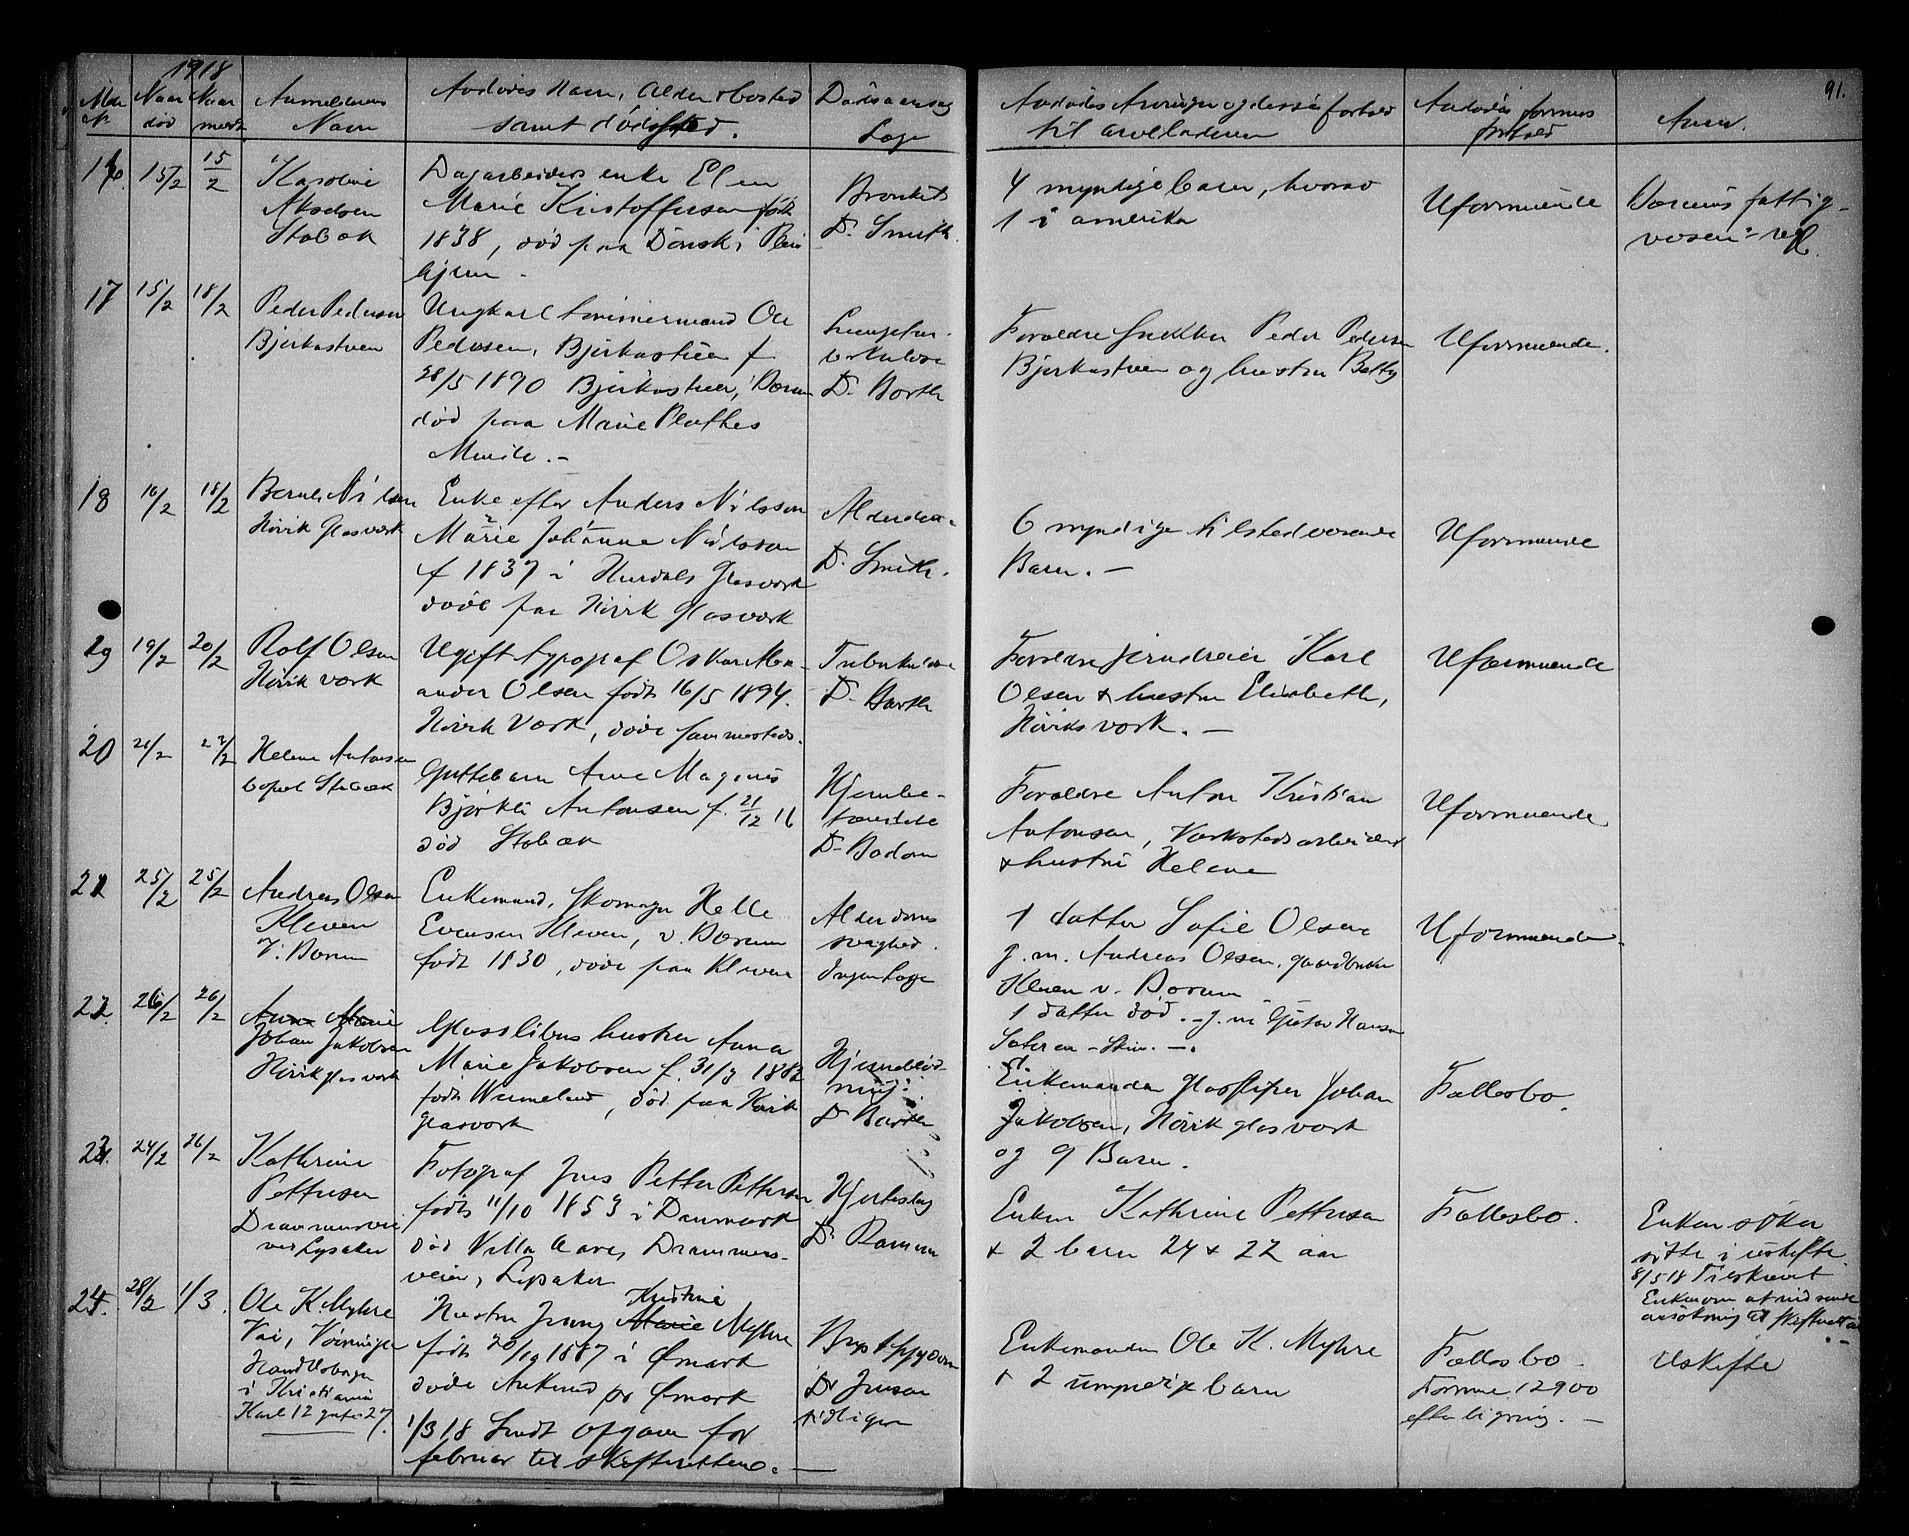 1918
91.
Naar død
Naar meldt
Anmelderens Navn
Avdødes Navn, Alder & bosted
samt dødssted.
Dødsaarsag
Læge
Avdødes Arvinger og dessas forhold
til arveladeren
Avdødes formues
forhold
Anm.
16. 15/2 15/2
Karoline
Akselsen
Stabæk
Dagarbeiders enke Elen
Marie Kristoffersen født
1838, død paa Dønski Plei
hjem.
Bronkit
Dr. Smith.
4 myndige barn, hvorav
1 i amerika
Uformuende
Bærums fattig-
væsen
17 15/2 18/2
Peder Pedersen
Bjerkastuen
Ungkarl tømmermand Ole
Pedersen, Bjerkastuen f
28/5 1890 Bjerkastuen, Bærum
død paa Marie Plathes
Minde. -
Lungetu-
berkulose
Dr. Barth
Forældre snekker Peder Pedersen
Bjerkastuen og hustru Betty
Uformuende.
18 16/2 18/2
Nilsson
Høvik Glasværk
Enke efter Anders Nilsson
Marie Johanne Nilsson
f 1837 i Hurdals Glasværk
døde paa Høvik Glasværk
Alderdom
Dr. Smith.
6 myndige tilstedværende
Barn. -
Uformuende
19 19/2 20/2
Rolf Olsen
Høvik værk
Ugift typograf Oskar Men-
ander Olsen født 16/5 1894.
Høvik Værk, døde sammesteds.
Tuberkulose
Dr. Barth
Forældre jerndreier Karl
Olsen & hustru Elisabeth,
Høviks værk. -
Uformuende
20 21/2 22/2
Helene Antonsen
bopæl Stabæk
Guttebarn Arne Magnus
Bjørkli Antonsen f. 21/12 16
død Stabæk
Hjernebe-
tændelse
Dr. Badom
Forældre Anton Kristian
Antonsen, Værkstedsarbeider
& hustru Helene
Uformuende
21 25/2 25/2
Andreas Olsen
Kleven
V. Bærum
Enkemand, Skomager Helle
Evensen Kleven, v. Bærum
født 1830, døde paa Kleven
Alderdoms
svaghed.
Ingen Læge
1 datter Sofie Olsen
g. m. Andreas Olsen, gaardbruker
Kleven v. Bærum
1 datter død. - g. m Gustav Hansen
Uformuende.
22. 26/2 26/2
Anna Marie
Johan Jakobsen
Høvik glasværk
Glasslibers hustru Anna
Marie Jakobsen f. 31/3 1882
født Wermeland, død paa Høvik
Glasværk
Hjerneblød-
ning
Dr Barth
Enkemanden Glassliper Johan
Jakobsen, Høvik glasværk
og 9 Barn.
Fællesbo.
23. 24/2 26/2
Kathrine
Pettersen
Drammensvei
ved Lysaker
Fotograf Jens Petter Pettersen
født 11/10 1853 i Danmark
død Villa Aaves, Drammens-
veien, Lysaker
Hjerteslag
Dr. Ramm
Enken Kathrine Pettersen
& 2 barn 24 & 22 aar
Fællesbo.
Enken søker
sitte i uskifte
8/5 18 Tilskrevet
Enken om at indsende
ansøkning til skifteretten
24. 28/2 1/3.
Ole K. Myhre
Handelsborger
i Kristiania
Karl 12 gate 27.
Hustru Jenny Marie Kristine Myhre
født 20/10 1887 i Ømark
døde Ankerud pr Ømark
Brysthygdom
Dr Jensen
Enkemanden Ole K. Myhre
& 2 umyndige barn
Fællesbo.
Formue 12900
efter ligning. -
Uskifte
1/3 18 Sendt opgave for
februar til skifteretten. -